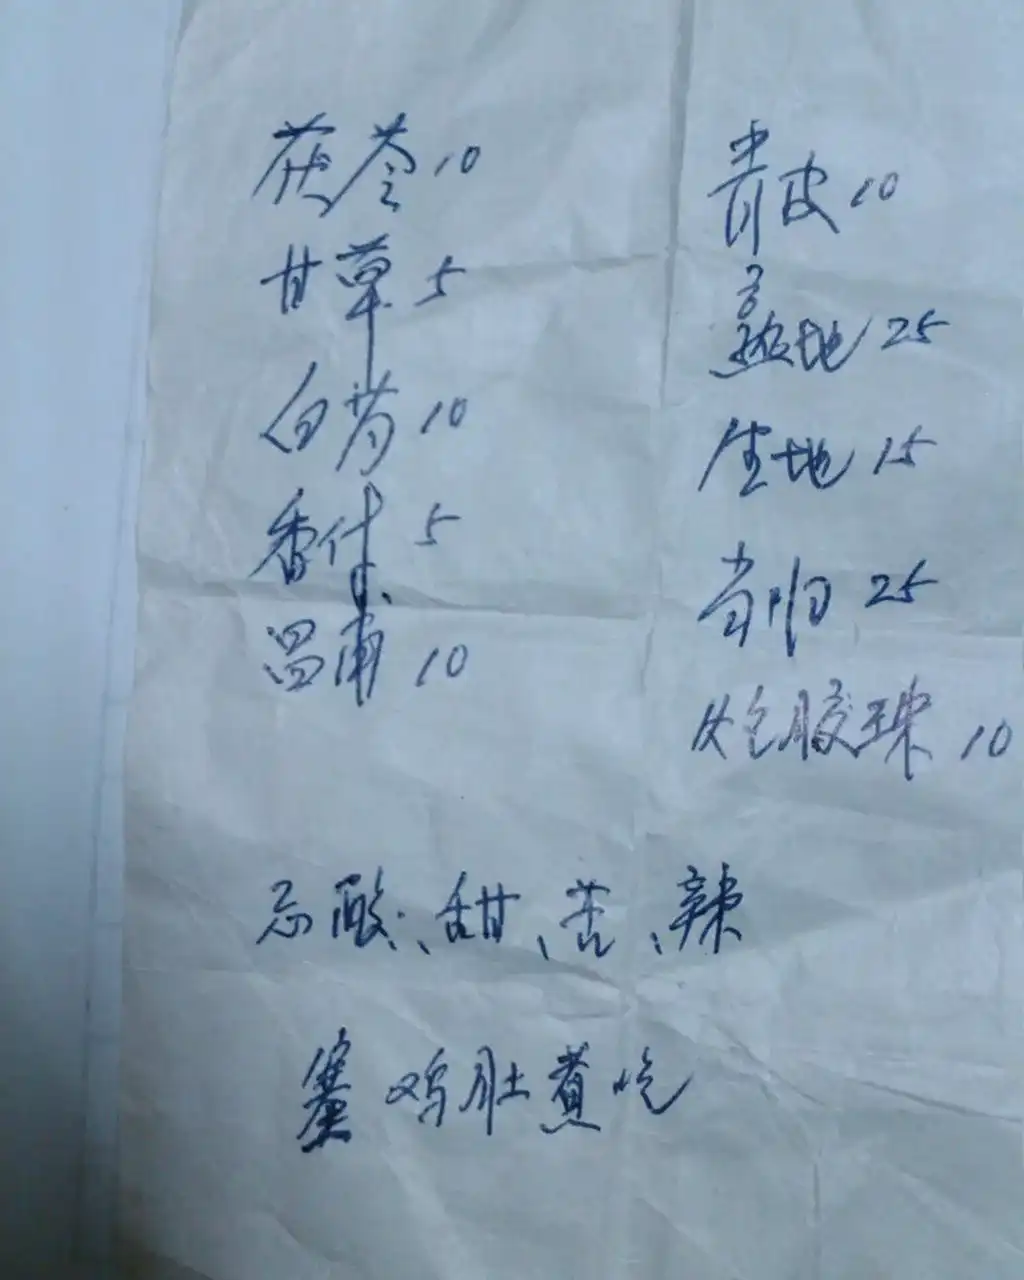 茯苓10
甘草 5
白芍10
香付 5
昌甫 10
青皮10
熟地25
生地15
当归25
炮胶珠10
忌酸、甜、苦、辣
塞鸡肚煮吃